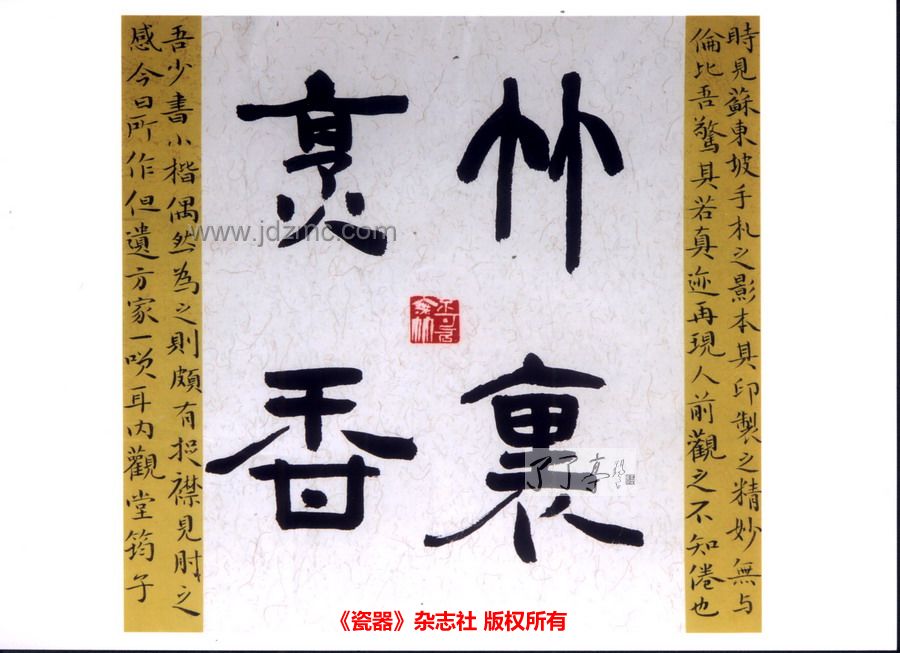 時見蘇東坡手札之影本其印製之精妙無与
倫比吾驚其若真迹再現人前觀之不知倦也
竹裏
烹香
不可居
無竹
吾少書小楷偶然為之則頗有捉襟見肘之
感今日所作但遺方家一咲耳内觀堂筠子
www.jdzmc.com
了了亭
《瓷器》杂志社 版权所有